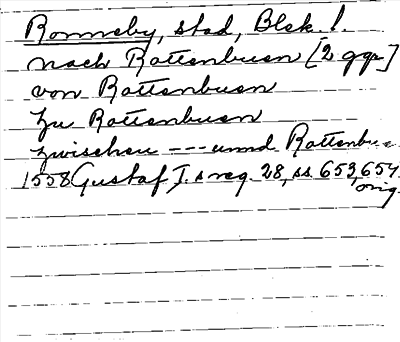 Ronneby, stad, Blek. l.
nach Rottenbuen [2 ggr]
von Rottenbuen
zu Rottenbuen
zwischen --- unnd Rottenbue
1558 Gustaf I.s reg. 28, ss. 653, 654.
orig.